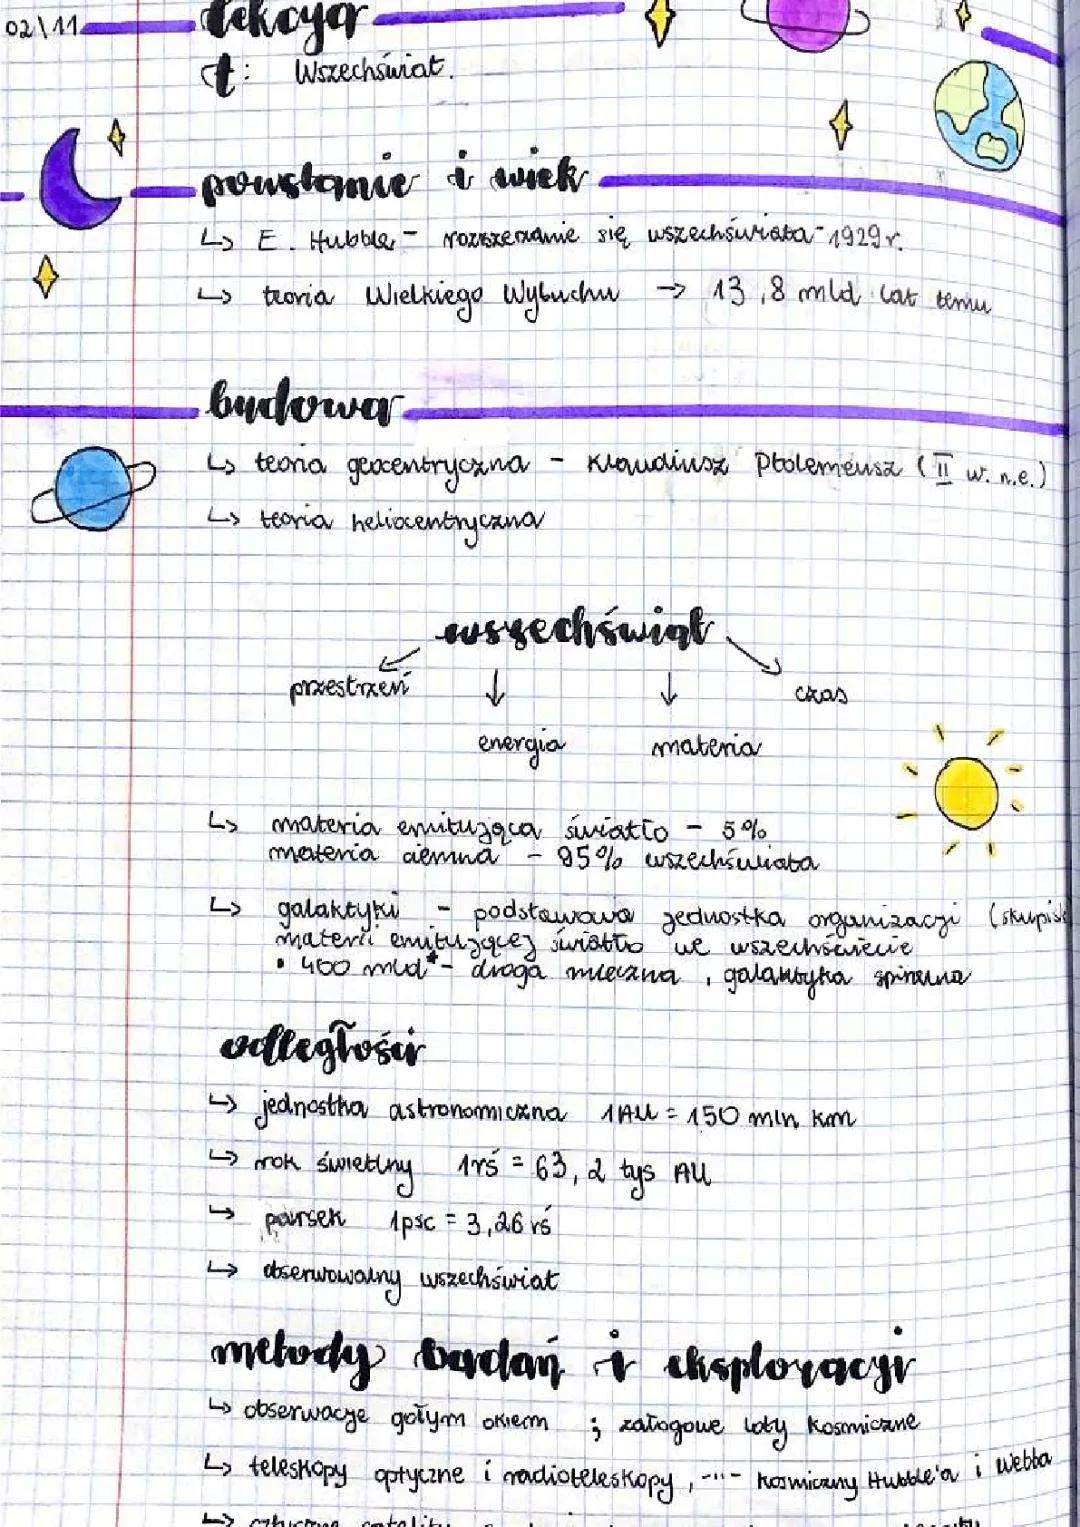 02\11 lekcja
t: Wszechświat.
powstanie i wiek
↳ E. Hubble - rozszerzanie się wszechświata - 1929r.
↳ teoria Wielkiego Wybuchu → 13,8 mld lat temu
budowa
↳ teoria geocentryczna - Klaudiusz Ptolemeusz (II w. n.e.)
↳ teoria heliocentryczna
wszechświat
przestrzeń ↓ ↓ czas
energia materia
↳ materia emitująca światło - 5%
materia ciemna - 95% wszechświata
↳ galaktyki - podstawowa jednostka organizacji (skupisk
materii emitującej światło we wszechświecie
• 400 mld* - droga mleczna, galaktyka spiralna
odległości
↳ jednostka astronomiczna 1AU = 150 mln km
↳ rok świetlny 1rś = 63,2 tys AU
↳ parsek 1psc = 3,26 rś
↳ obserwowalny wszechświat
metody badań i eksploracji
↳ obserwacje gołym okiem ; załogowe loty kosmiczne
↳ teleskopy optyczne i radioteleskopy, -"- kosmiczny Hubble'a i Webba